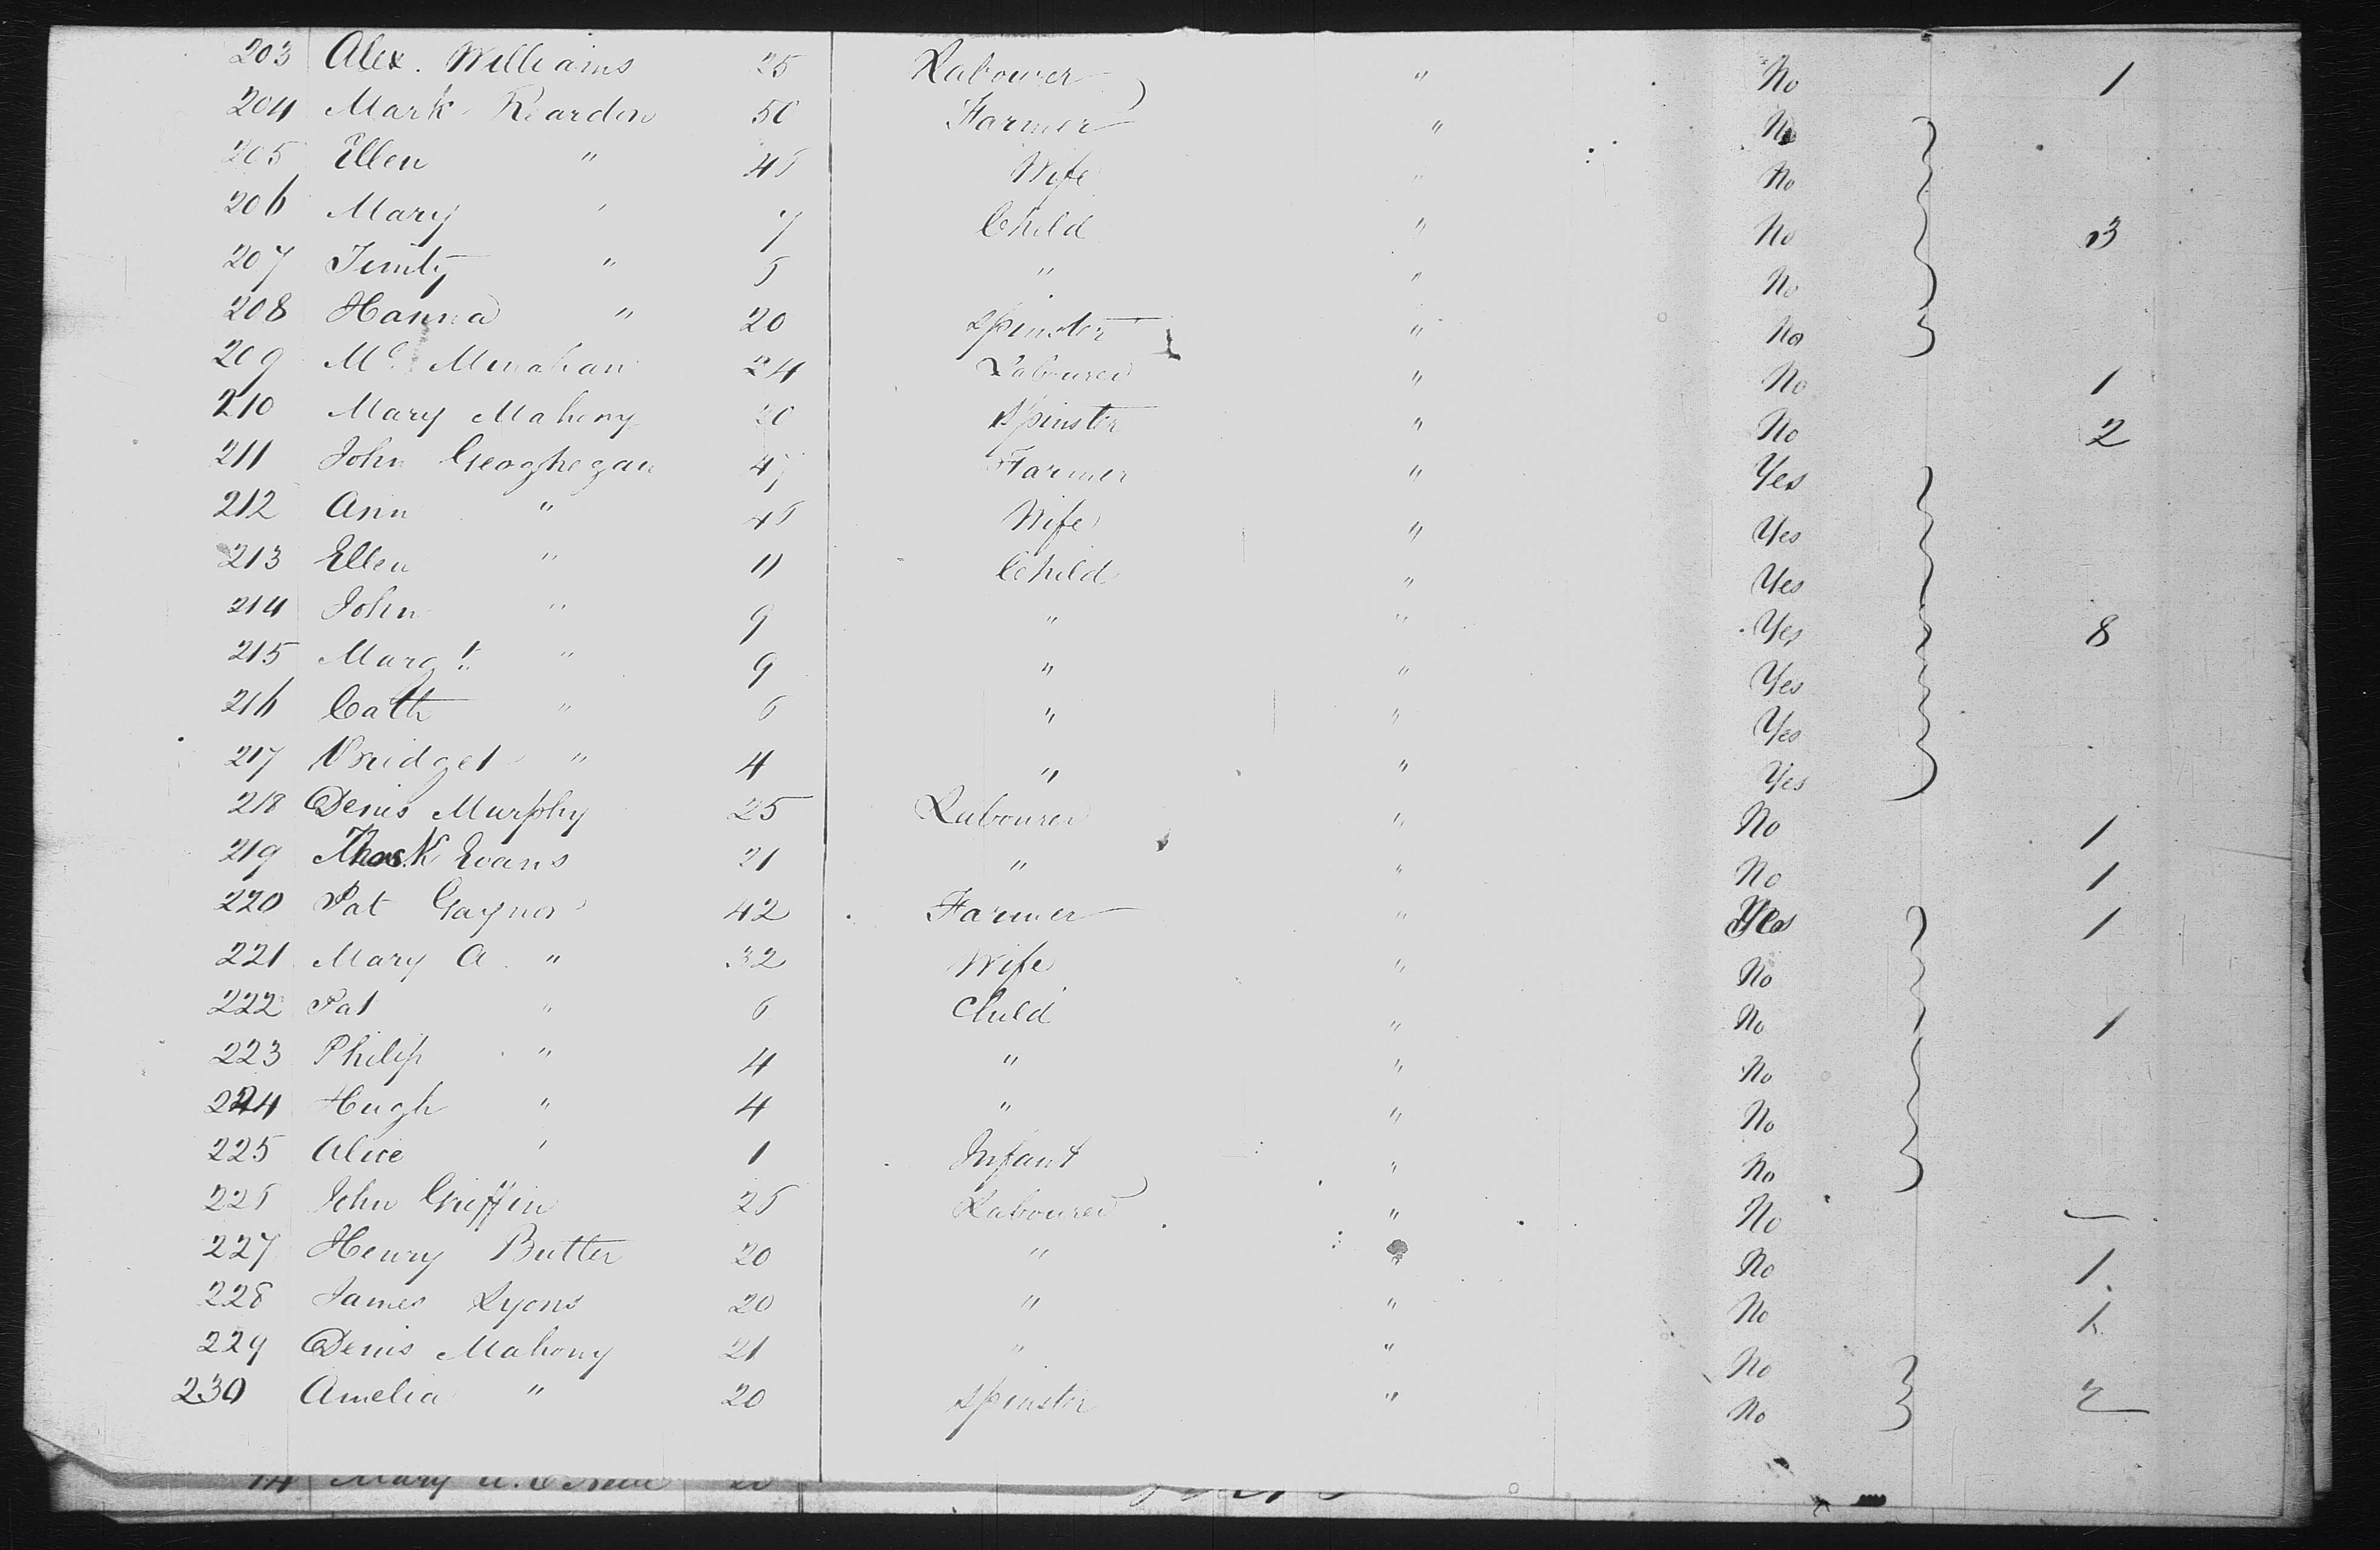 203 Alex. Williams 25 Labourer " No 1
204 Mark Reardon 50 Farmer " No
205 Ellen " 45 Wife " No
206 Mary " 7 Child " No 3
207 Timty " 5 " " No
208 Hanna " 20 Spinster " No
209 Ml. Minahan 24 Labourer " No 1
210 Mary Mahony 20 Spinster " No 2
211 John Geoghegan 47 Farmer " Yes
212 Ann " 45 Wife " Yes
213 Ellen " 11 Child " Yes
214 John " 9 " " Yes 8
215 Margt. " 9 " " Yes
216 Cath " 6 " " Yes
217 Bridget " 4 " " Yes
218 Denis Murphy 25 Labourer " No 1
219 Evans 21 " " No 1
220 Pat Gaynor 42 Farmer " 1
221 Mary A. " 32 Wife " No
222 Pat " 6 Child " No 1
223 Philip " 4 " " No
224 Hugh " 4 " " No
225 Alice " 1 Infant " No
226 John Griffin 25 Labourer " No —
227 Henry Butler 20 " " No 1.
228 James Lyons 20 " " No 1.
229 Denis Mahony 21 " " No
230 Amelia " 20 Spinster " No 2